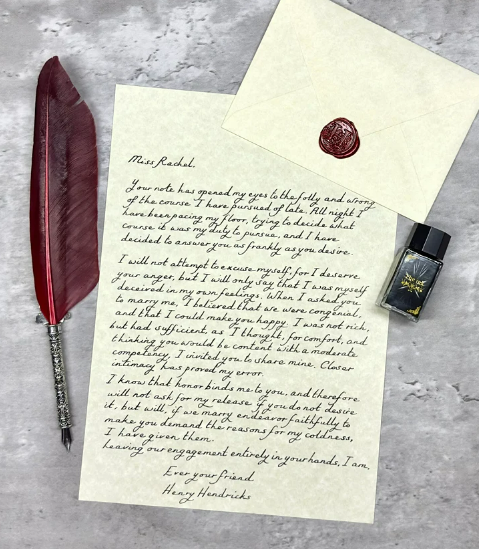 Miss Rachel,
Your note has opened my eyes to the folly and wrong
of the course I have pursued of late. All night I
have been pacing my floor, trying to decide what
course it was my duty to pursue, and I have
decided to answer you as frankly as you desire.
I will not attempt to excuse myself, for I deserve
your anger, but I will only say that I was myself
deceived in my own feelings. When I asked you
to marry me, I believed that we were congenial,
and that I could make you happy. I was not rich,
but had sufficient, as I thought, for comfort, and
thinking you would be content with a moderate
competency, I invited you to share mine. Closer
intimacy has proved my error.
I know that honor binds me to you, and therefore
will not ask for my release if you do not desire
it, but will, if we marry endeavor faithfully to
make you demand the reasons for my coldness,
I have given them.
Leaving our engagement entirely in your hands, I am,
Ever your friend.
Henry Hendricks